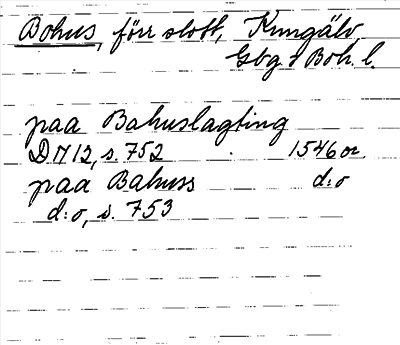 Bohus, förr slott, Kungälv
Gbg o Boh. l.
paa Bahuslagting
DN 12, s. 752 1546 or.
paa Bahuss d:o
d:o, s. 753